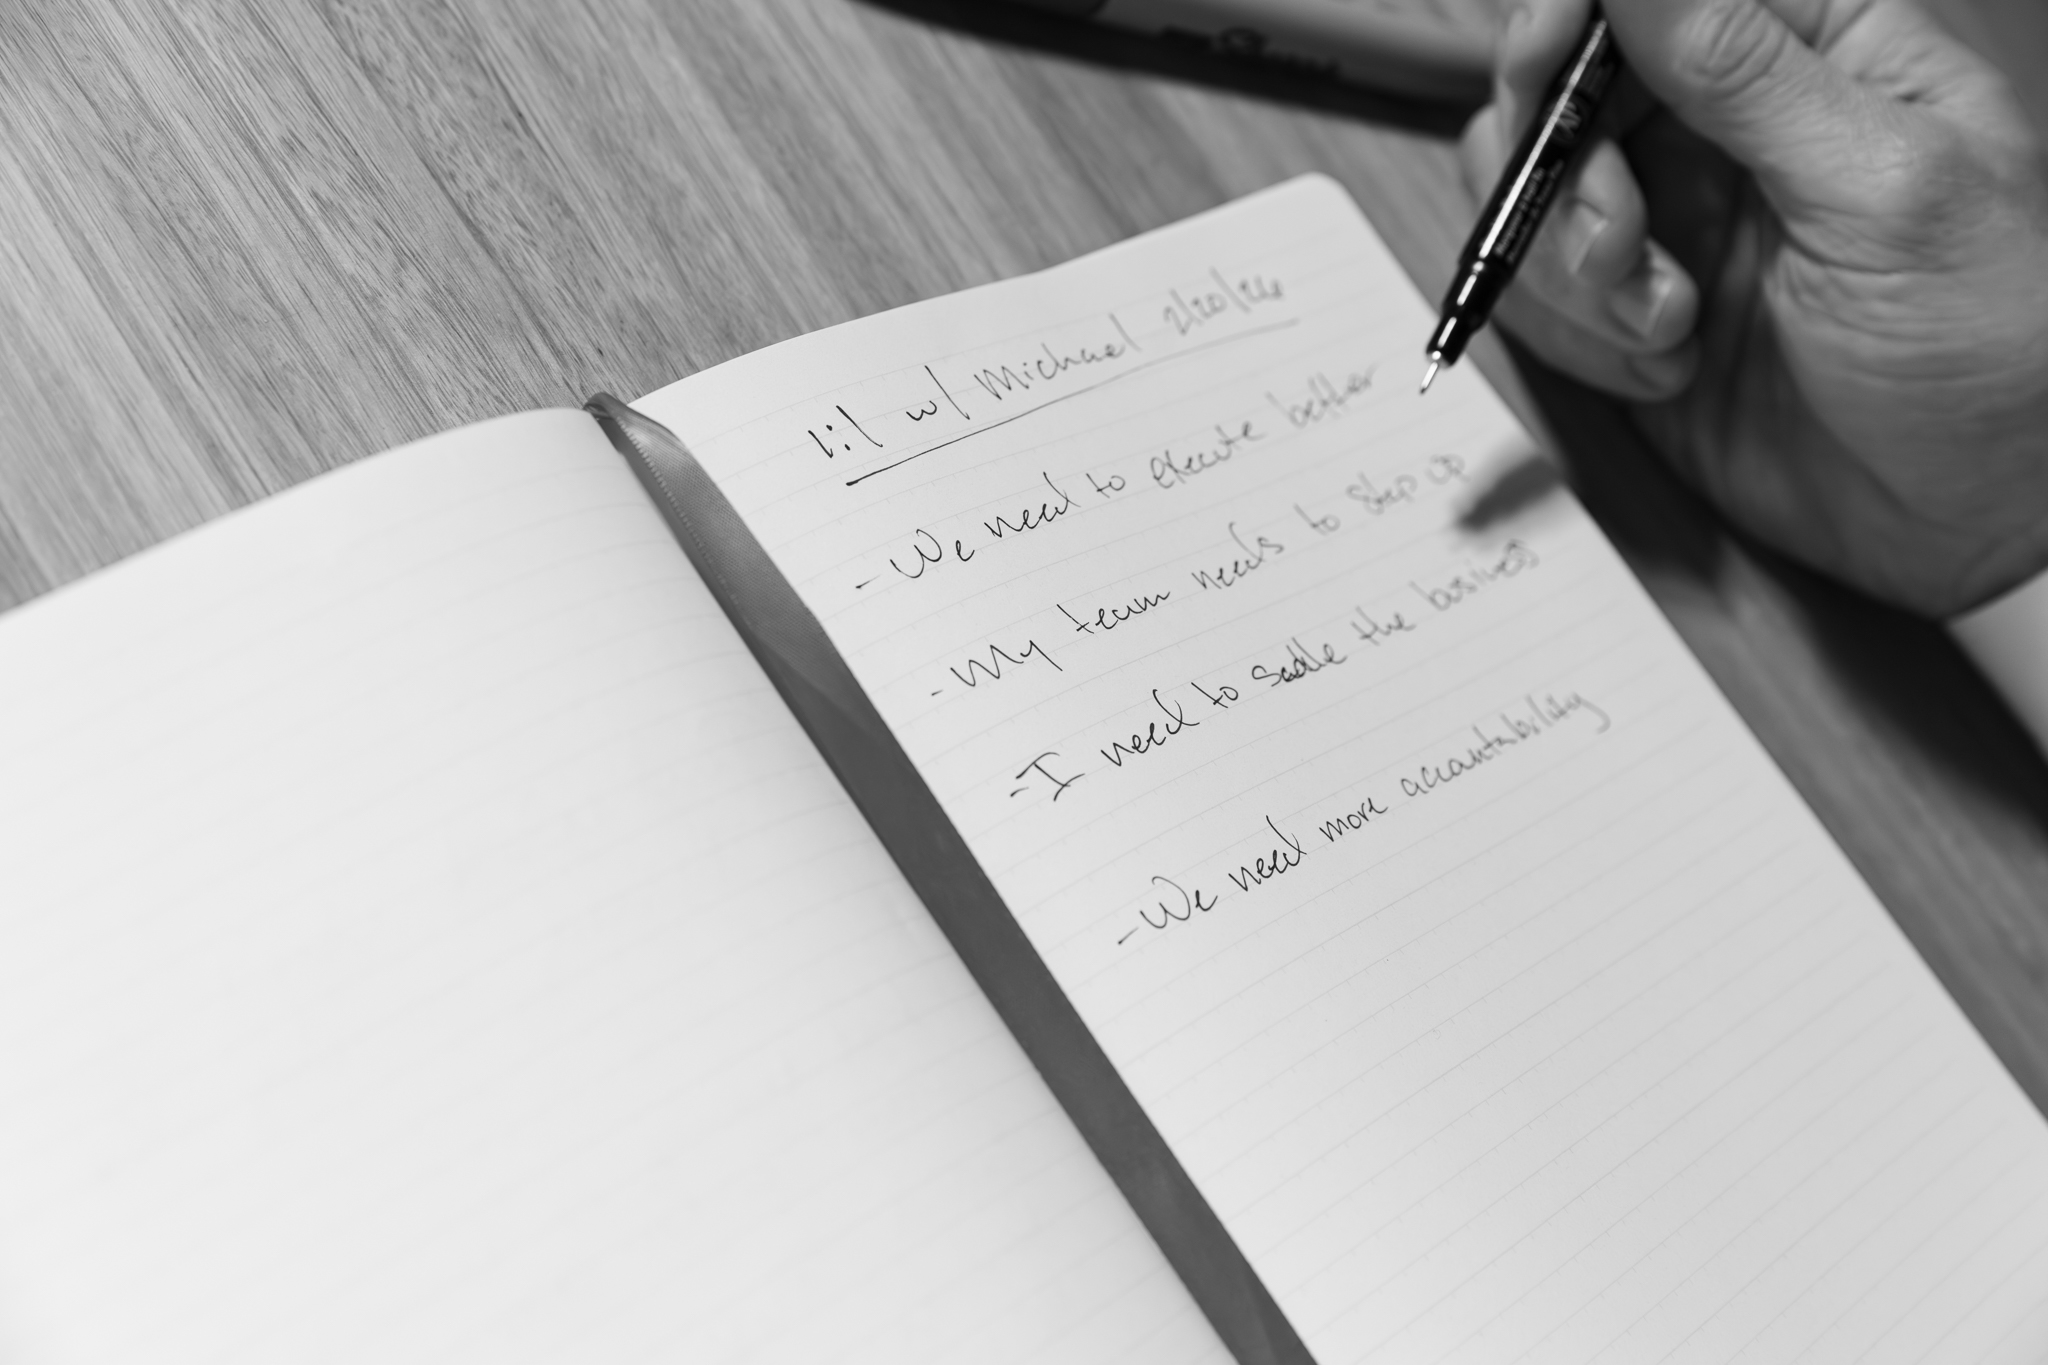 1:1 w/ Michael 2/20/26
- We need to execute better
- My team needs to step up
- I need to saddle the business
- We need more accountability